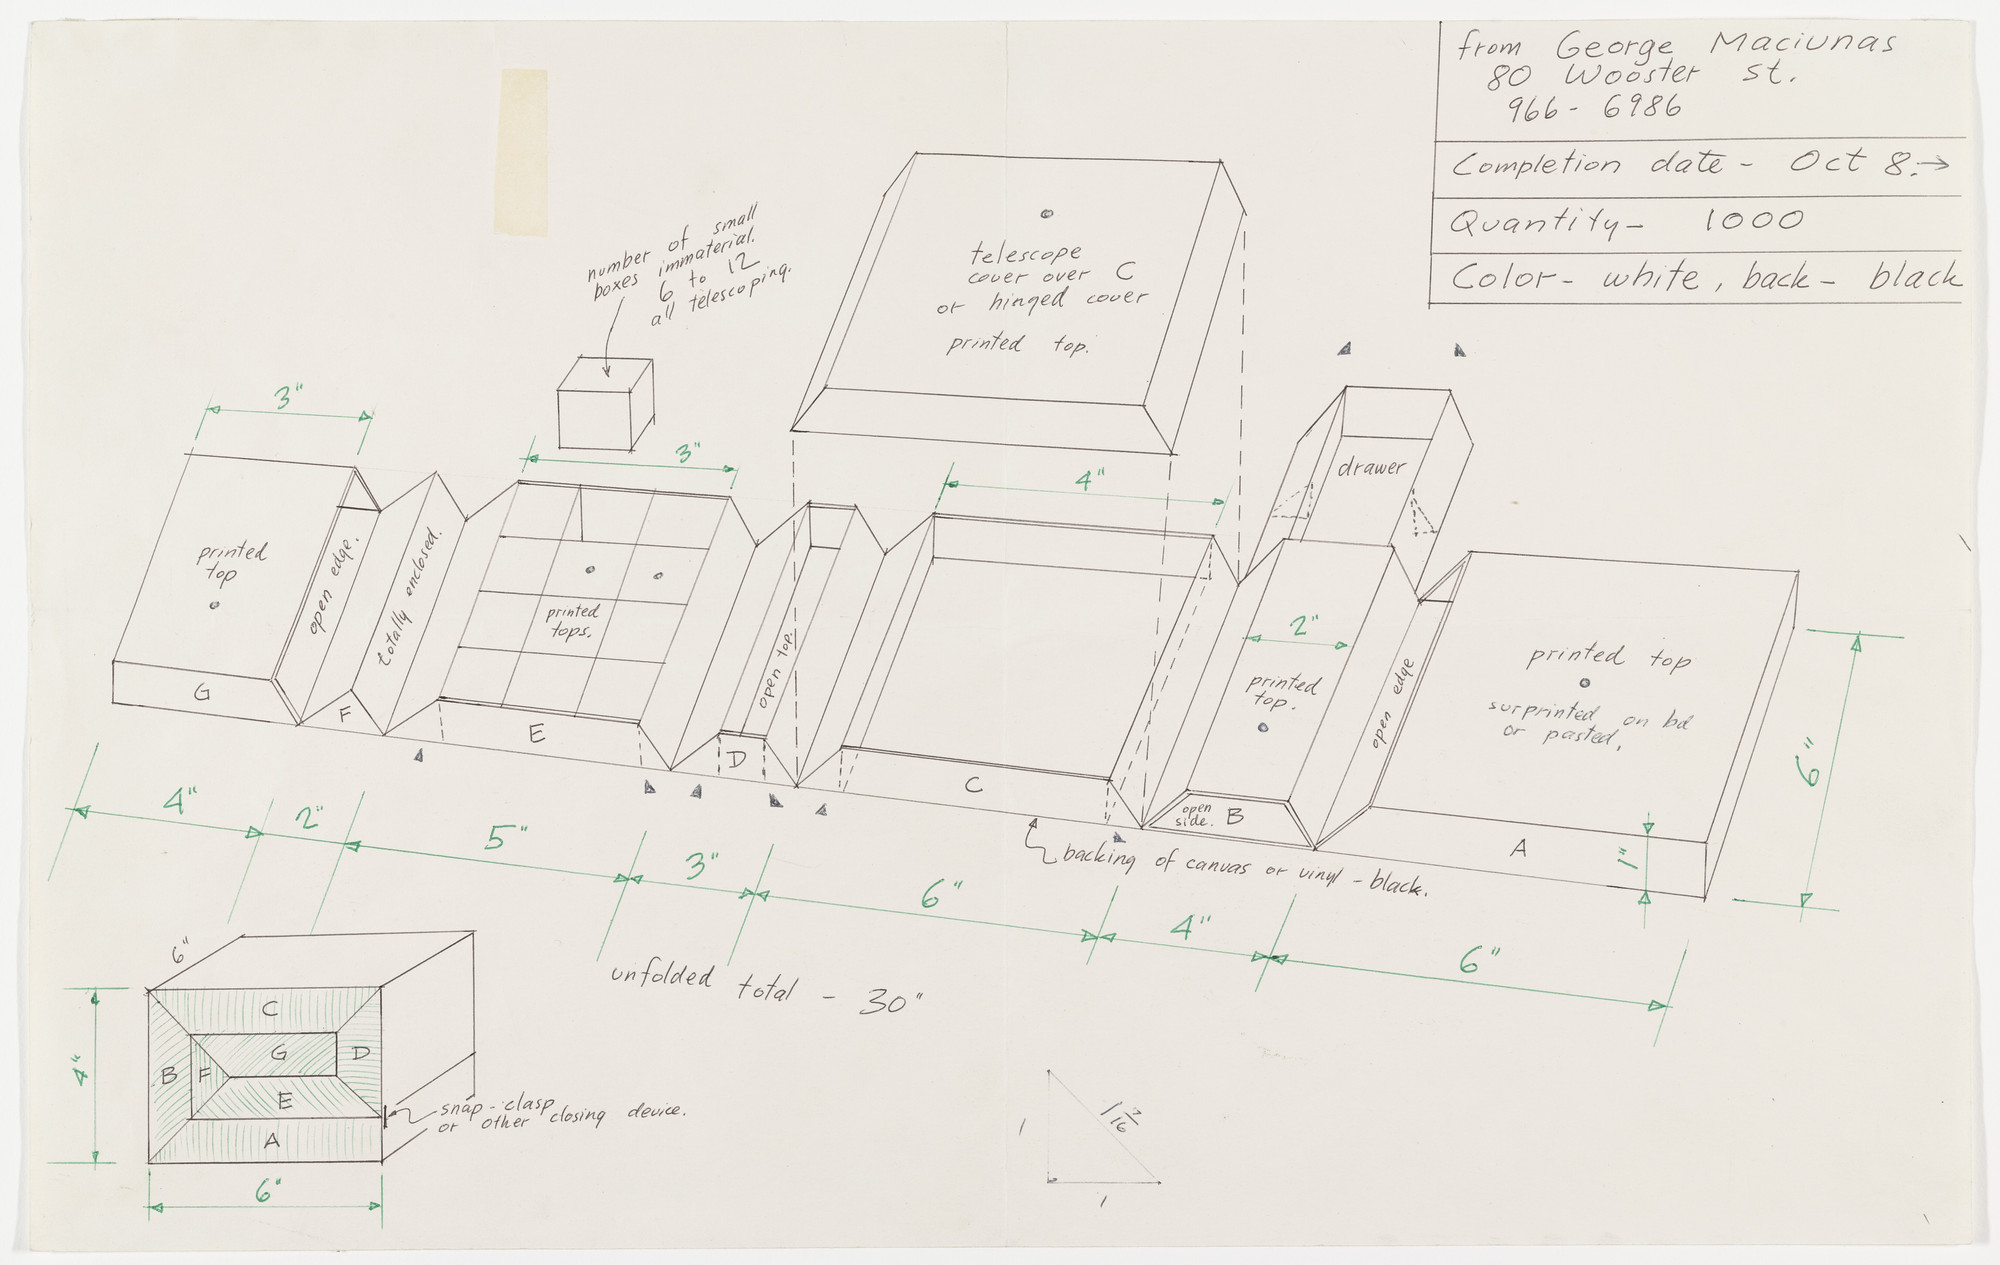 from George Maciunas
80 Wooster st.
966-6986
Completion date - Oct 8.→
Quantity- 1000
Color- white, back- black
number of small
boxes immaterial.
6 to 12
all telescoping.
telescope
cover over C
or hinged cover
printed top.
3"
3"
4"
drawer
printed
top
open edge.
totally enclosed.
printed
tops.
open top.
2"
printed
top.
open edge
printed top
surprinted on bd
or pasted.
6"
1"
G
F
E
D
C
open
side.
B
A
backing of canvas or vinyl - black.
4"
2"
5"
3"
6"
4"
6"
unfolded total - 30"
6"
4"
C
G
D
B
F
E
A
6"
snap-clasp
or other closing device.
1
1 7/16
1